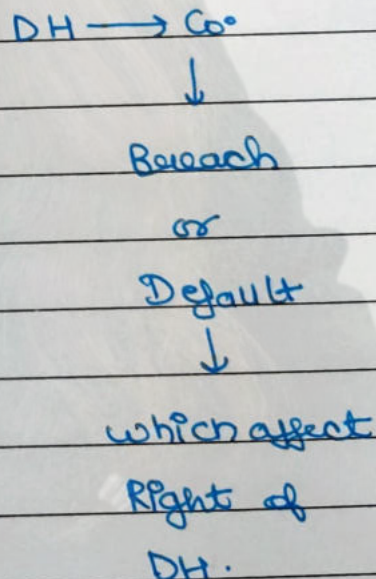 DH → Co.
↓
Breach
or
Default
↓
which affect
Right of
DH.